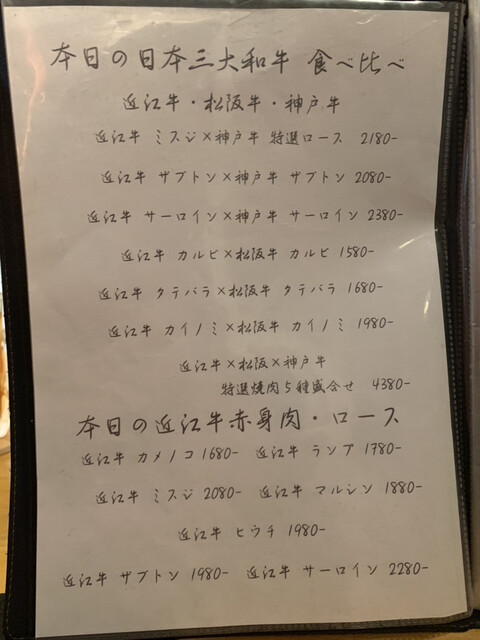 本日の日本三大和牛 食べ比べ
近江牛・松阪牛・神戸牛
近江牛 ミスジ×神戸牛 特選ロース 2180-
近江牛 ザブトン×神戸牛 ザブトン 2080-
近江牛 サーロイン×神戸牛 サーロイン 2380-
近江牛 カルビ×松阪牛 カルビ 1580-
近江牛 タテバラ×松阪牛 タテバラ 1680-
近江牛 カイノミ×松阪牛 カイノミ 1980-
近江牛×松阪×神戸牛
特選焼肉5種盛合せ 4380-
本日の近江牛赤身肉・ロース
近江牛 カメノコ 1680- 近江牛 ランプ 1780-
近江牛 ミスジ 2080- 近江牛 マルシン 1880-
近江牛 ヒウチ 1980-
近江牛 ザブトン 1980- 近江牛 サーロイン 2280-